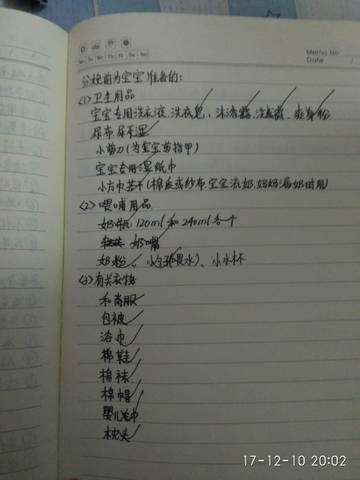 Memo No.
Mo Tu We Th Fr Sa Su
Date
分娩前为宝宝准备的:
<1>卫生用品
宝宝专用洗衣液、洗衣皂、沐浴露、洗发露、爽身粉
尿布、尿不湿
小剪刀(为宝宝剪指甲)
宝宝专用湿纸巾
小方巾若干(棉质或纱布,宝宝洗奶、妈妈漏奶时用)
<2>喂哺用品
奶瓶 120ml 和 240ml 各一个
奶嘴
奶粉、小勺(喂水)、小水杯
<3>有关衣物
和尚服
包被
浴巾
棉鞋
棉袜
棉帽
婴儿毛巾
枕头
17-12-10 20:02